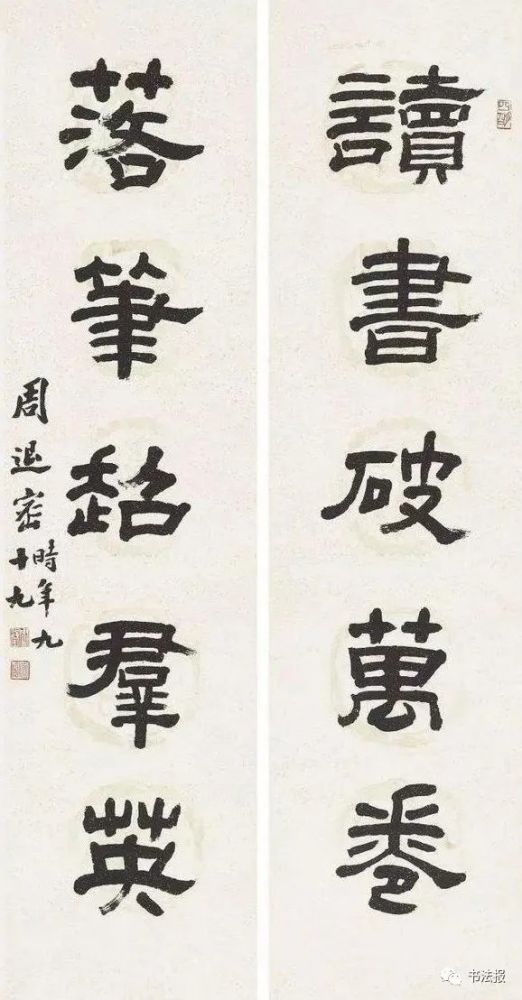 讀書破萬卷
落筆超羣英
周退密時年九
十九
书法报